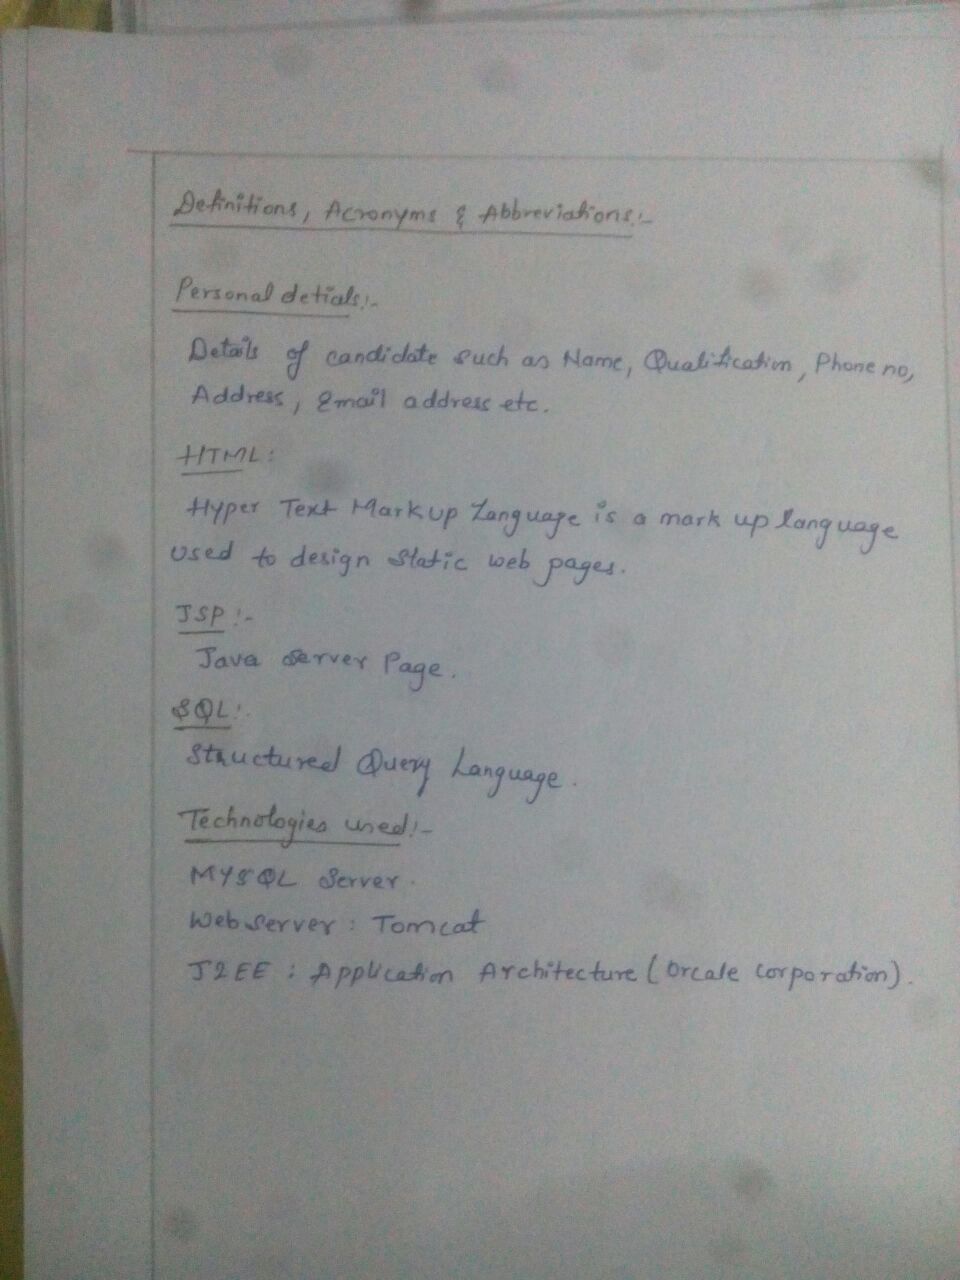 Definitions, Acronyms & Abbreviations:-
Personal detials:-
Details of candidate such as Name, Qualification, Phone no,
Address, Email address etc.
HTML:
Hyper Text Markup Language is a mark up language
used to design static web pages.
JSP:-
Java Server Page.
SQL:-
Structured Query Language.
Technologies used:-
MYSQL Server.
Web Server: Tomcat
J2EE: Application Architecture (Orcale Corporation).